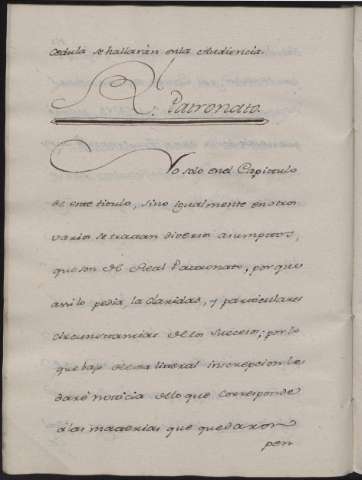 cedula se hallaràn en la Audiencia.
Rl. Patronato.
No solo en el Capitulo
de este titulo, sino igualmente en otros
varios se tratan diversos assumptos,
que son del Real Patronato, por que
assi lo pedia la claridad, y particulares
circunstancias de los Sucesos; por lo
que bajo de esta literal inscripcion le
daré noticia de lo que corresponde
à las materias que quedaron
pen